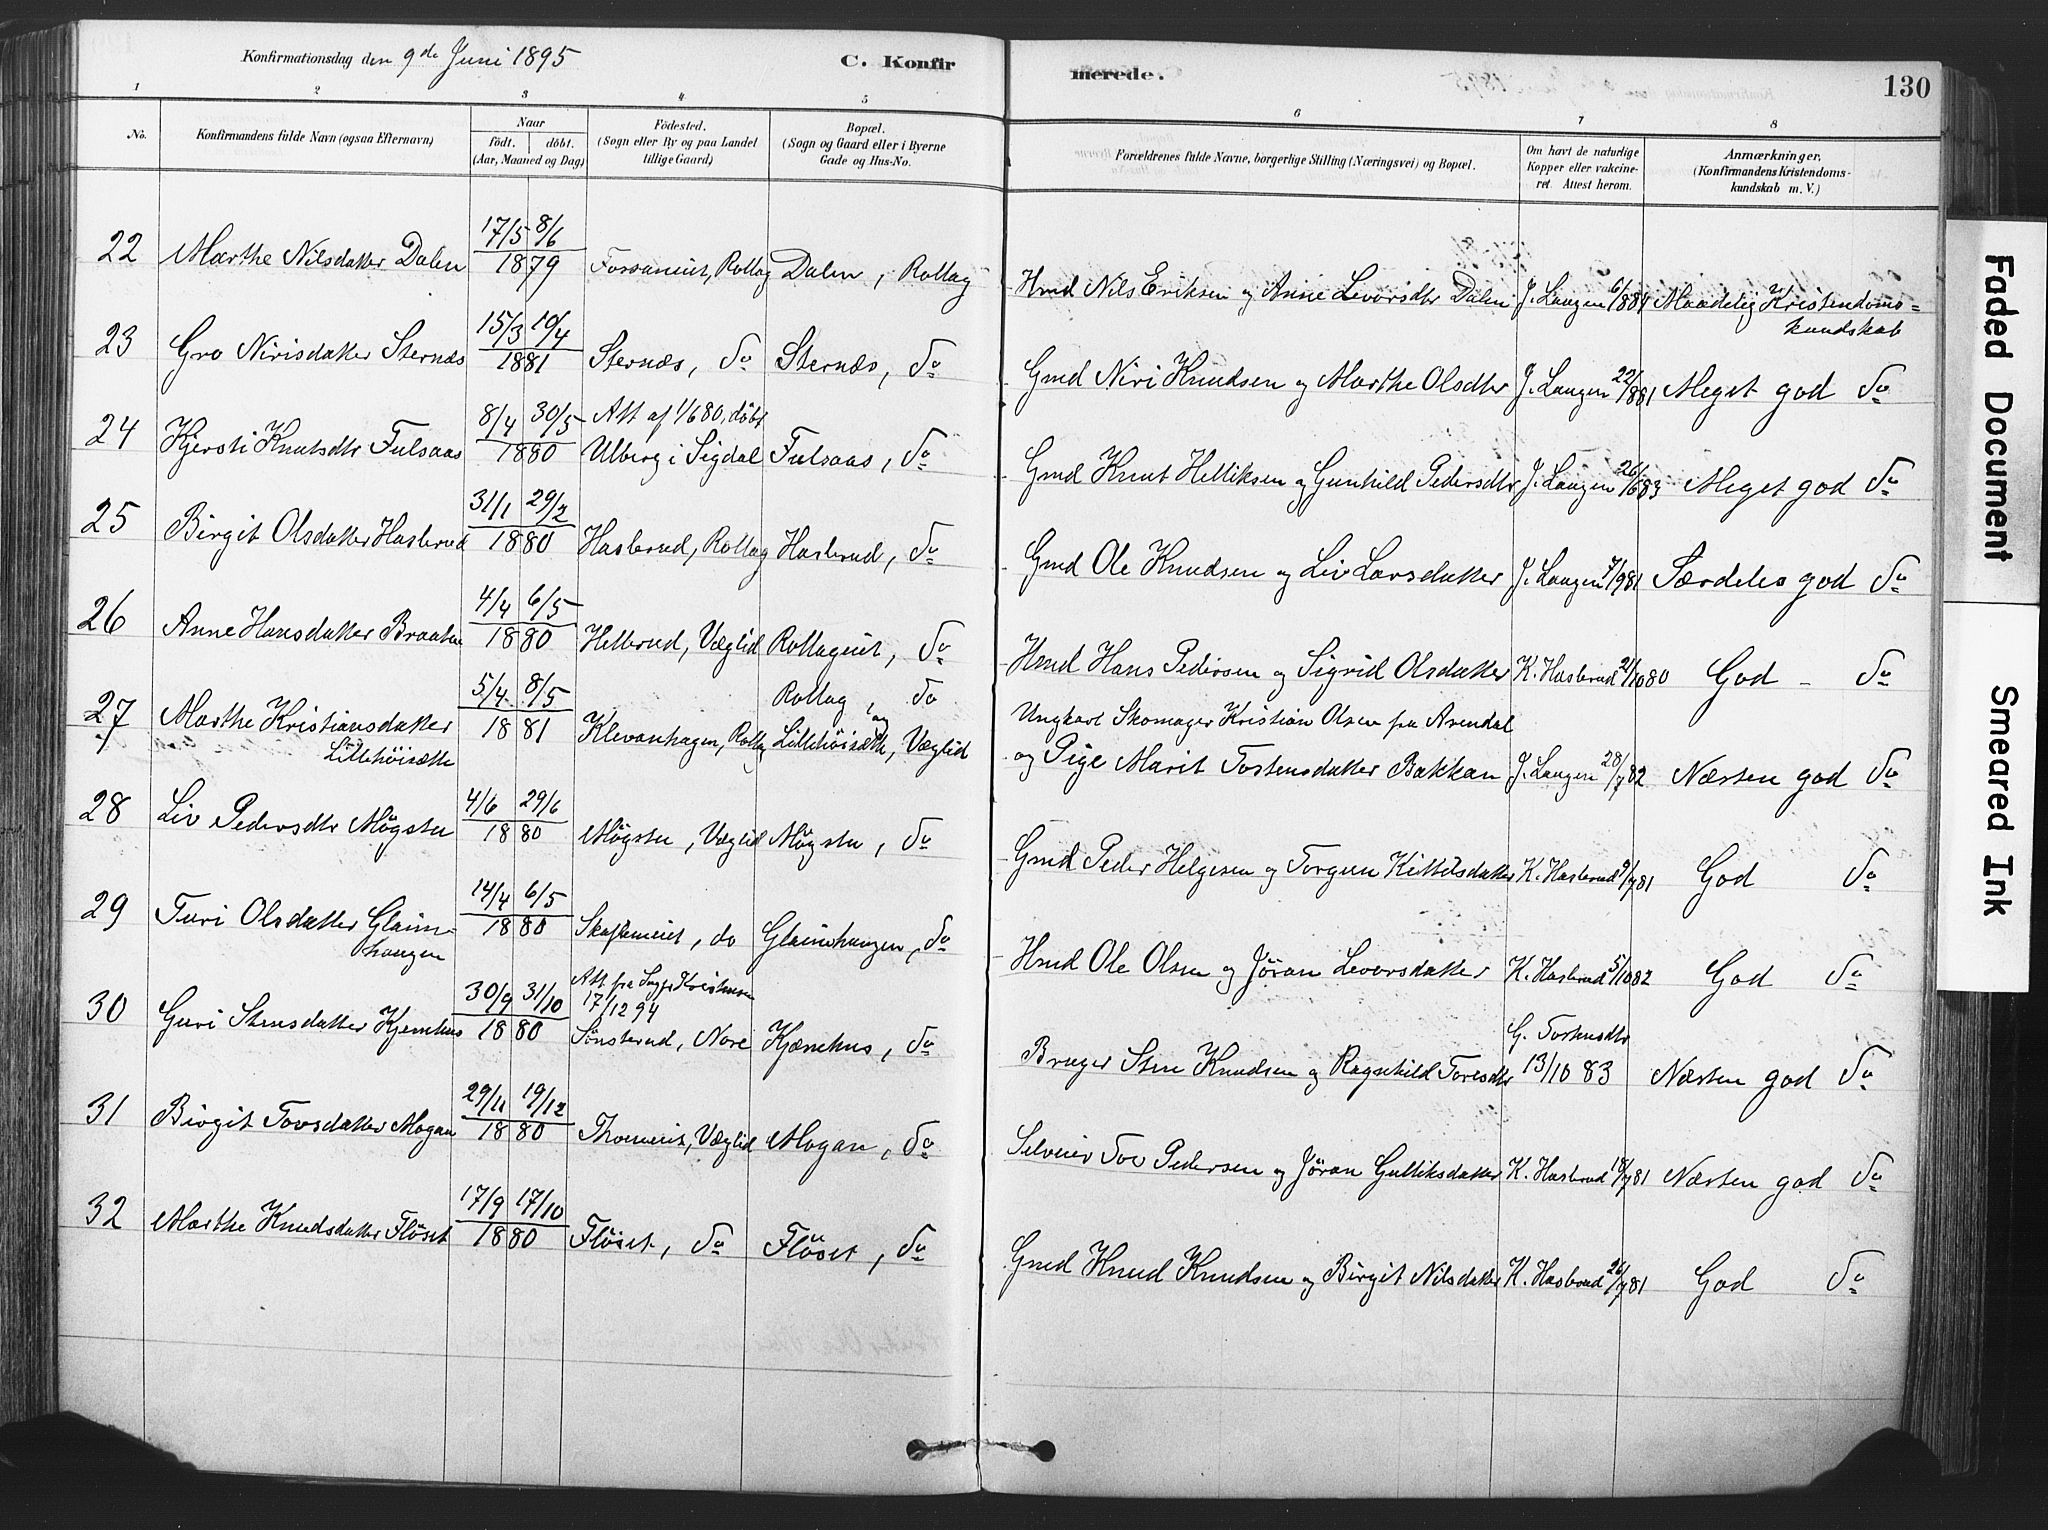 Konfirmationsdag den 9de Juni 1895 C. Konfirmerede. 130
1 2 3 4 5 6 7 8
No. Konfirmandens fulde Navn (ogsaa Efternavn) Naar födt. döbt. (Aar, Maaned og Dag) Födested. (Sogn eller By og paa Landet tillige Gaard) Bopæl. (Sogn og Gaard eller i Byerne Gade og Hus-No. Forældrenes fulde Navne, borgerlige Stilling (Næringsvei) og Bopæl. Om havt de naturlige Kopper eller vakcineret. Attest herom. Anmærkninger. (Konfirmandens Kristendomskundskab m. V.)
22 Marthe Nilsdatter Dalen 17/5 8/6 1879 Fossaneiet, Rollag Dalen, Rollag Hmd Nils Eriksen og Anne Levorsdtr Dalen J. Laagen 6/8 84 Maadelig Kristendoms=kundskab
23 Gro Nirisdatter Sternæs 15/3 10/4 1881 Sternæs, do Sternæs, do Gmd Niri Knudsen og Marthe Olsdtr J. Laagen 22/8 81 Meget god do
24 Kjersti Knutsdtr Fulsaas 8/4 30/5 1880 Att af 1/6 80, döbt Ulberg i Sigdal Fulsaas, do Gmd Knut Helliksen og Gunhild Pedersdtr J. Laagen 26/6 83 Meget god do
25 Birgit Olsdatter Haslerud 31/1 29/2 1880 Haslerud, Rollag Haslerud, do Gmd Ole Knudsen og Liv Larsdatter J. Laagen 7/9 81 Særdeles god do
26 Anne Hansdatter Braaten 4/4 6/5 1880 Hellerud, Væglid Rollageiet, do Hmd Hans Pedersen og Sigrid Olsdatter K. Haslerud 2/10 80 God - do
27 Marthe Kristiansdatter Lillehöisætte 5/4 8/5 1881 Klevanhagen, Rollag Rollag, do og Lillehöisætte, Væglid Ungkarl Skomager Kristian Olsen fra Arendal og Pige Marit Tostensdatter Bakkan J. Laagen 28/7 82 Næsten god do
28 Liv Pedersdtr Mögstu 4/6 29/6 1880 Mögstu, Væglid Mögstu, do Gmd Peder Helgesen og Torgun Kittilsdatter K. Haslerud 9/7 81 God do
29 Turi Olsdatter Glaim=haugen 14/4 6/5 1880 Skaftemeiet, do Glaimhaugen, do Hmd Ole Olsen og Jöran Levorsdatter K. Haslerud 5/10 82 God do
30 Guri Stensdatter Kjemhus 30/9 31/10 1880 Att fra Sogpr Kristensen 17/12 94 Sönsterud, Nore Kjæmhus, do Bruger Sten Knudsen og Ragnhild Toresdtr G. Tostensdtr 13/10 83 Næsten god do
31 Birgit Tovsdatter Mogan 29/11 19/12 1880 Thomeiet, Væglid Mogan, do Selveier Tov Pedersen og Jöran Gulliksdatter K. Haslerud 18/7 81 Næsten god do
32 Marthe Knudsdatter Flöset 17/9 17/10 1880 Flöset, do Flöset, do Gmd Knud Knudsen og Birgit Nilsdatter K. Haslerud 26/7 81 God do
Faded Document
Smeared Ink